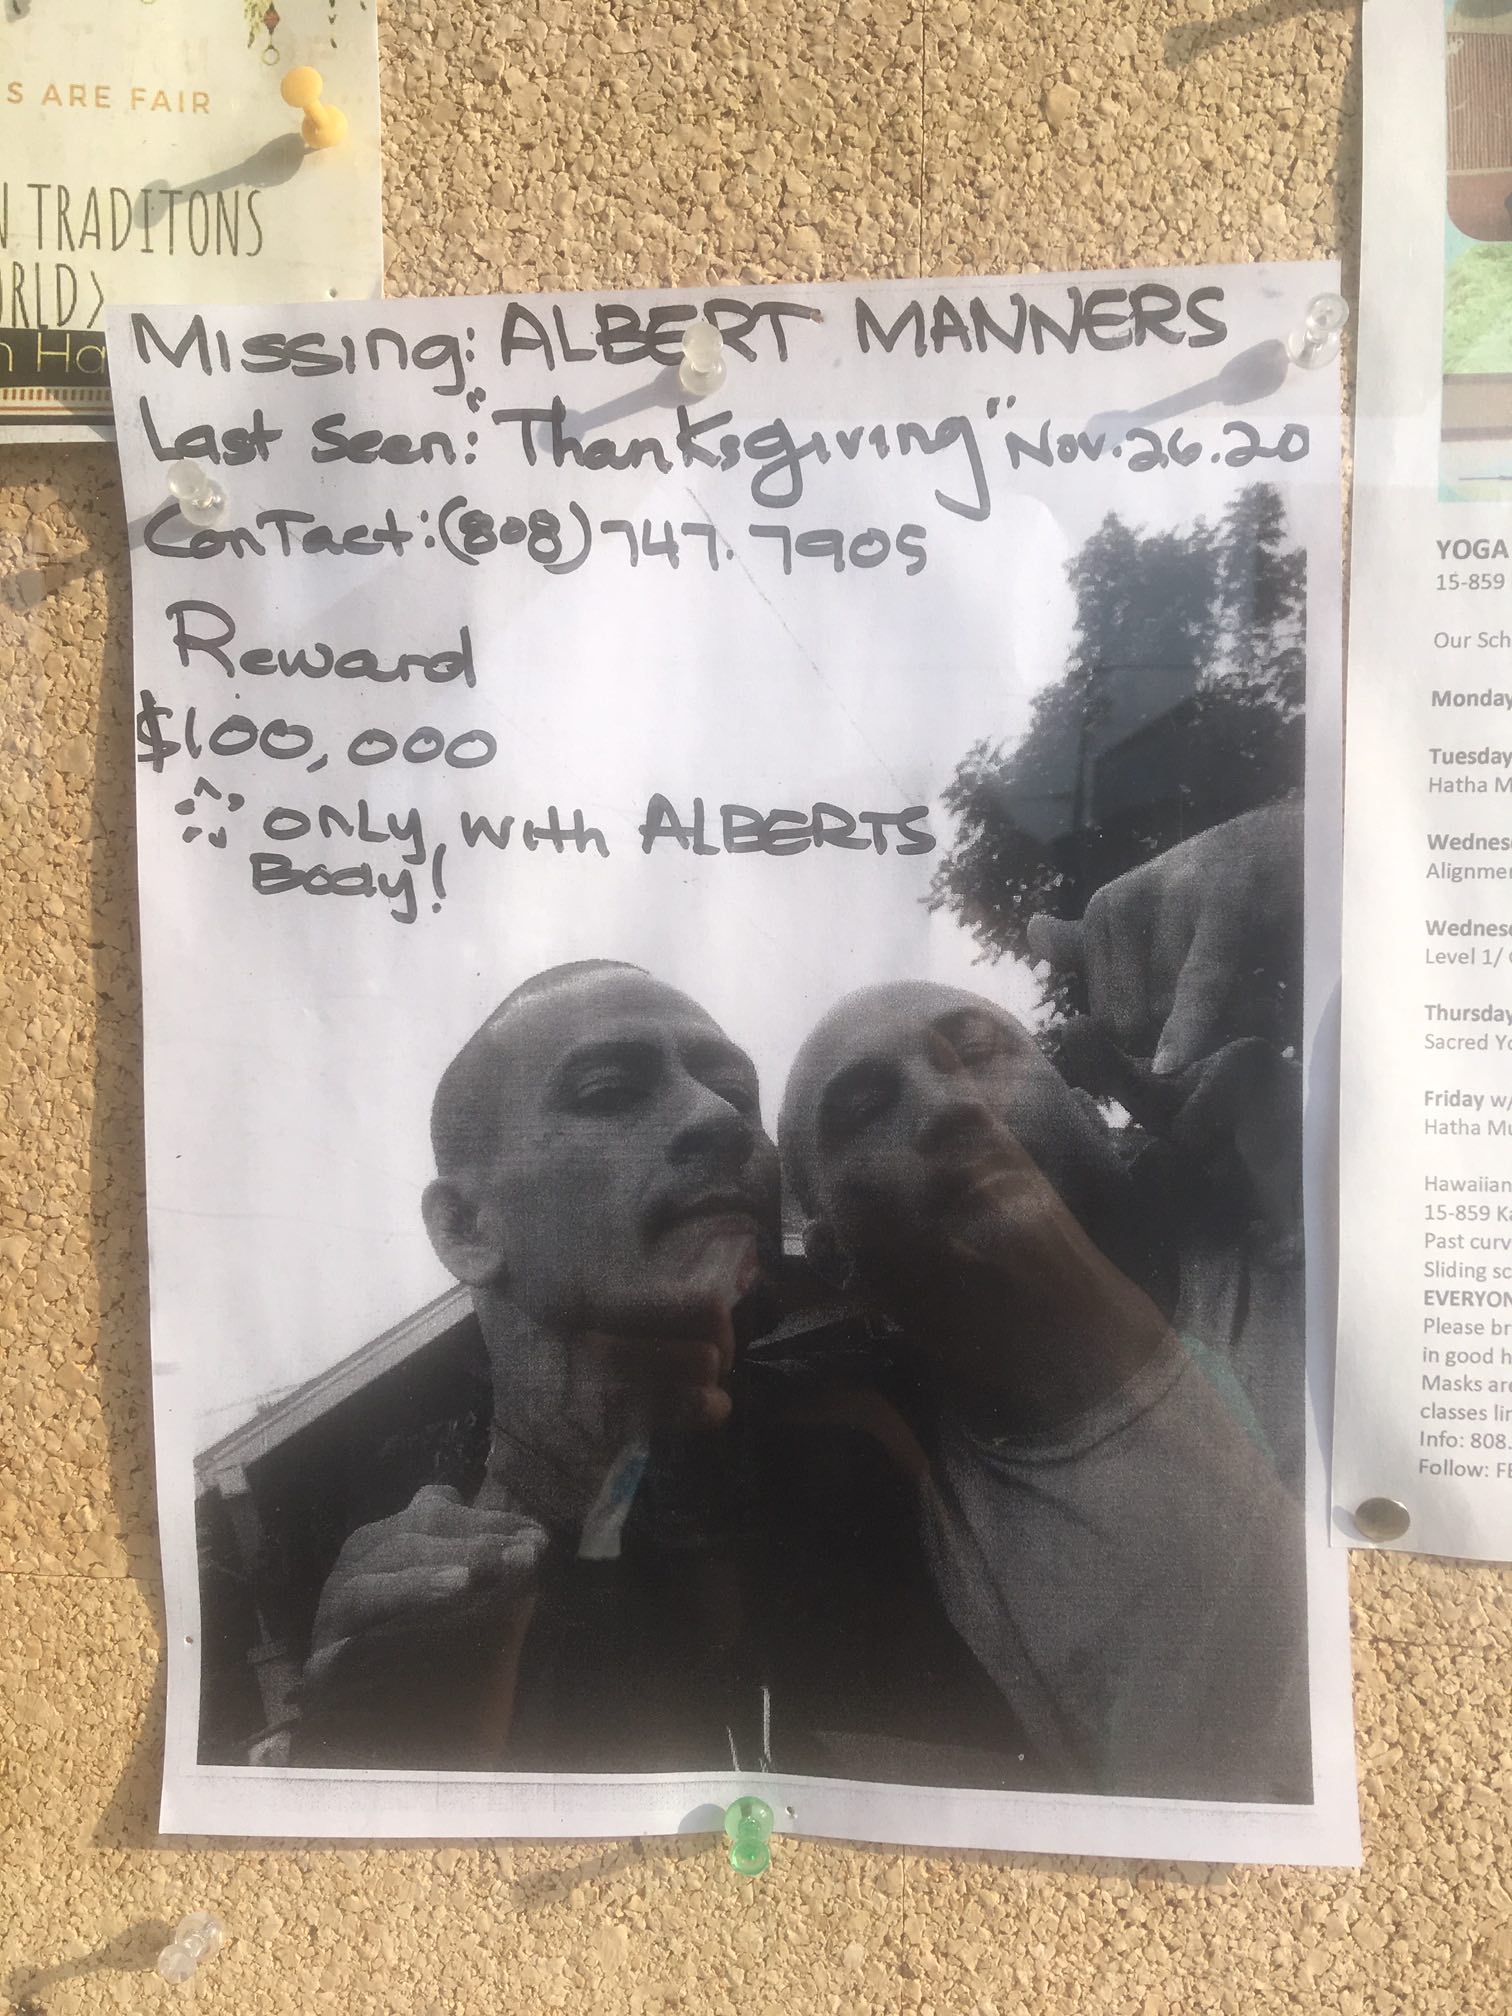 S ARE FAIR
N TRADITONS
ORLD>
n Ha
Missing: ALBERT MANNERS
Last Seen: "Thanksgiving" Nov. 26. 20
Contact: (808) 747. 7905
Reward
$100,000
only with ALBERTS
Body!
YOGA
15-859
Our Sch
Monday
Tuesday
Hatha M
Wednes
Alignme
Wednes
Level 1/
Thursday
Sacred Yo
Friday w/
Hatha Mu
Hawaiian
15-859 Ka
Past curv
Sliding sc
EVERYON
Please br
in good h
Masks are
classes lin
Info: 808.
Follow: F